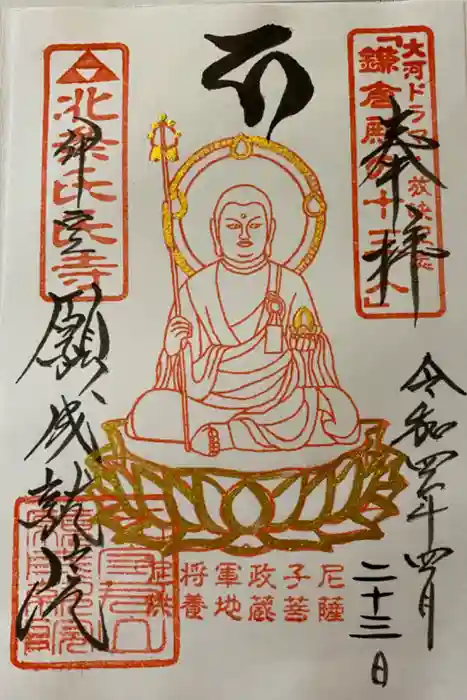 奉拝
大河ドラマ
「鎌倉殿の十三人」
令和四年四月
二十三日
北条氏氏寺
伊豆
願成就院
将軍政子尼
供養地蔵菩薩